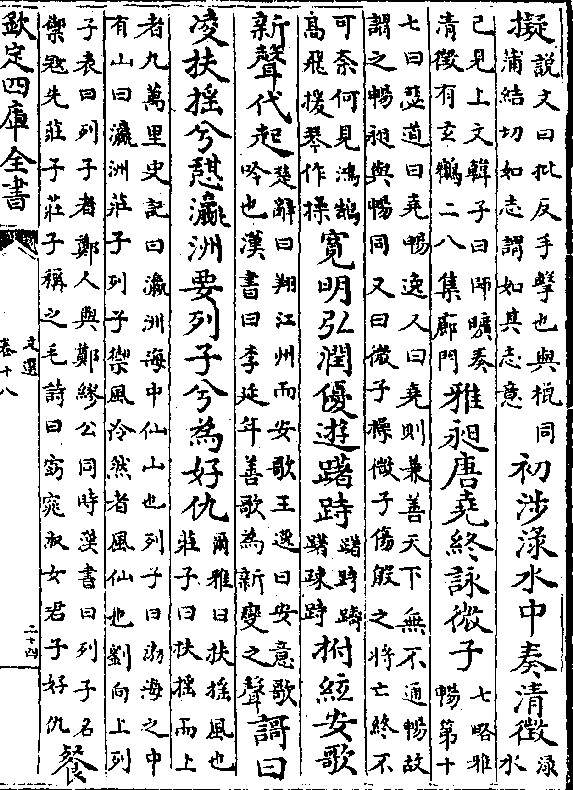 擬説文曰批反手擊也與㧙同蒲結切如志謂如其志意初涉渌水中奏清徵渌水
已見上文韓子曰師曠奏清徵有玄鶴二八集廊門雅昶唐堯終詠微子七略雅暢第十
七曰琴道曰堯暢逸人曰堯則兼善天下無不通暢故謂之暢昶與暢同又曰微子操微子傷殷之將亡終不
可奈何見鴻鵠高飛援琴作操寛明弘潤優遊躇跱躇跱躊躇竦跱拊絃安歌
新聲代起楚辭曰翔江州而安歌王逸曰安意歌吟也漢書曰李延年善歌為新變之聲謌曰
凌扶揺兮憇瀛洲要列子兮為好仇爾雅曰扶揺風也莊子曰扶揺而上
者九萬里史記曰瀛洲海中仙山也列子曰渤海之中有山曰瀛洲莊子列子禦風冷然者風仙也劉向上列
子表曰列子者鄭人與鄭繆公同時漢書曰列子名禦冦先莊子莊子稱之毛詩曰窈窕淑女君子好仇餐
欽定四庫全書
文選
卷十八
二十四